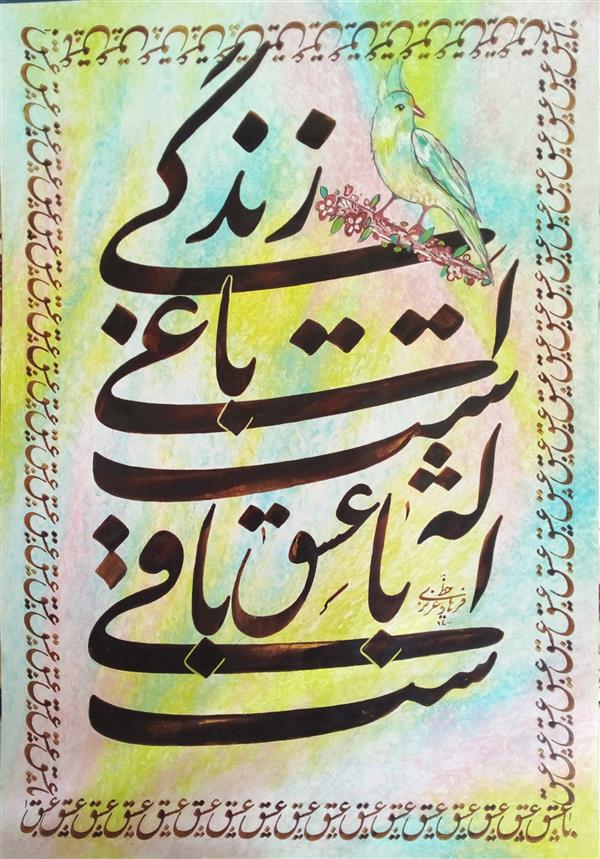 زندگی
باغی است
که با عشق باقی است
خط
فرهاد عزیزی
با عشق عشق عشق عشق عشق عشق عشق عشق عشق عشق عشق عشق عشق عشق عشق